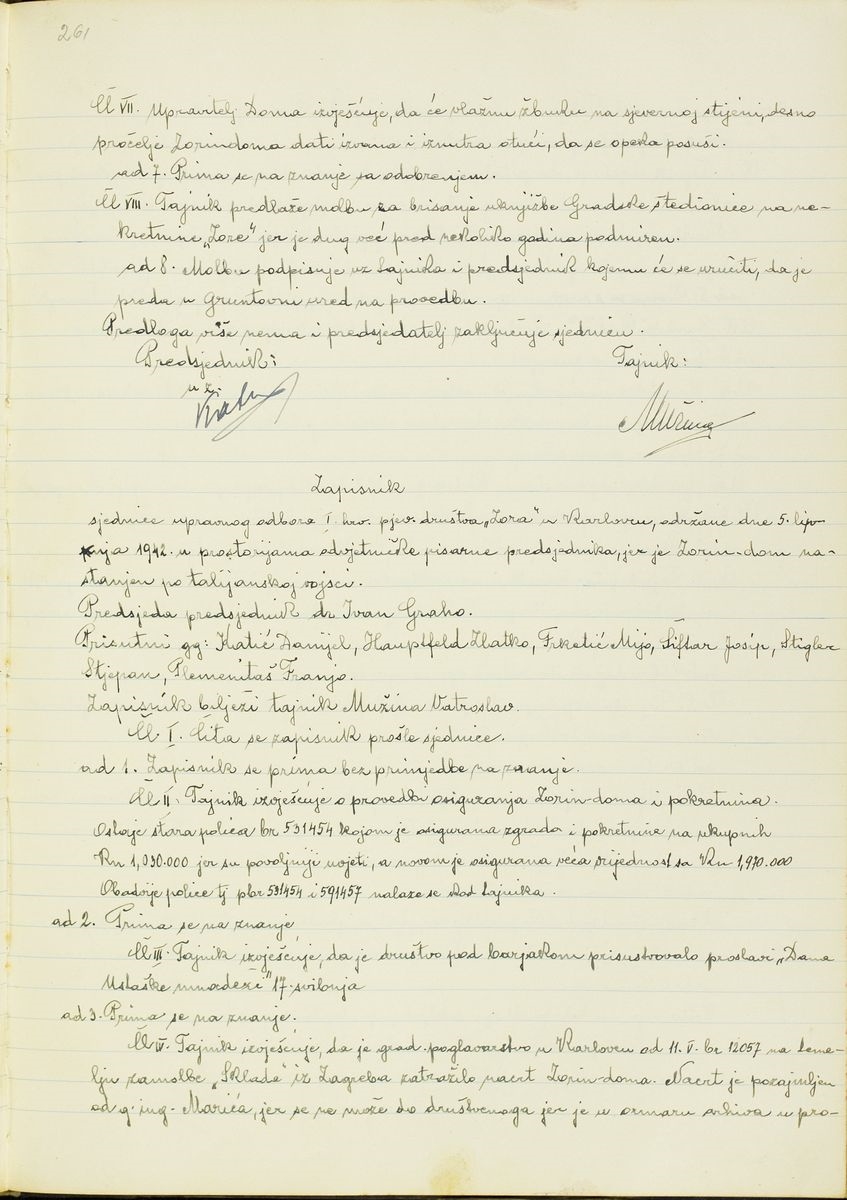 261
Čl VII. Upravitelj Doma izvješćuje, da će vlažnu žbuku na sjevernoj stijeni, desno
pročelje Zorindoma dati izvana i iznutra otući, da se opeka posuši.
ad 7. Prima se na znanje sa odobrenjem.
Čl VIII. Tajnik predlaže molbu za brisanje uknjižbe Gradske štedionice na ne-
kretnine „Zore" jer je dug već pred nekoliko godina podmiren.
ad 8. Molbu podpisuje uz tajnika i predsjednik kojemu će se uručiti, da je
preda u gruntovni ured na provedbu.
Predloga više nema i predsjedatelj zaključuje sjednicu.
Predsjednik: Tajnik:
u z.
Mužina
Zapisnik
sjednice upravnog odbora I. hrv. pjev. društva „Zora" u Karlovcu, održane dne 5. lip-
nja 1942. u prostorijama odvjetničke pisarne predsjednika, jer je Zorin-dom na-
stanjen po talijanskoj vojsci.
Predsjeda predsjednik dr Ivan Graho.
Prisutni gg: Katić Danijel, Hauptfeld Zlatko, Frketić Mijo, Šiftar Josip, Stigler
Stjepan, Plemenitaš Franjo.
Zapisnik bilježi tajnik Mužina Vatroslav.
Čl. I. Čita se zapisnik prošle sjednice.
ad 1. Zapisnik se prima bez primjedbe na znanje.
Čl II. Tajnik izvješćuje o provedbi osiguranja Zorin-doma i pokretnina.
Ostaje stara polica br 531454 kojom je osigurana zgrada i pokretnine na ukupnih
Kn 1,030.000 jer su povoljniji uvjeti, a novom je osigurana veća vrijednost sa Kn 1,970.000
Obadvije police tj pbr 531454 i 591457 nalaze se kod tajnika.
ad 2. Prima se na znanje
Čl III. Tajnik izvješćuje, da je društvo pod barjakom prisustvovalo proslavi „Dana
Ustaške mladeži" 17. svibnja
ad 3. Prima se na znanje.
Čl IV. Tajnik izvješćuje, da je grad. poglavarstvo u Karlovcu od 11. V. br 12057 na teme-
lju zamolbe „Sklada" iz Zagreba zatražilo nacrt Zorin-doma. Nacrt je pozajmljen
od g. ing. Marića, jer se ne može do društvenoga jer je u ormaru arhiva u pro-